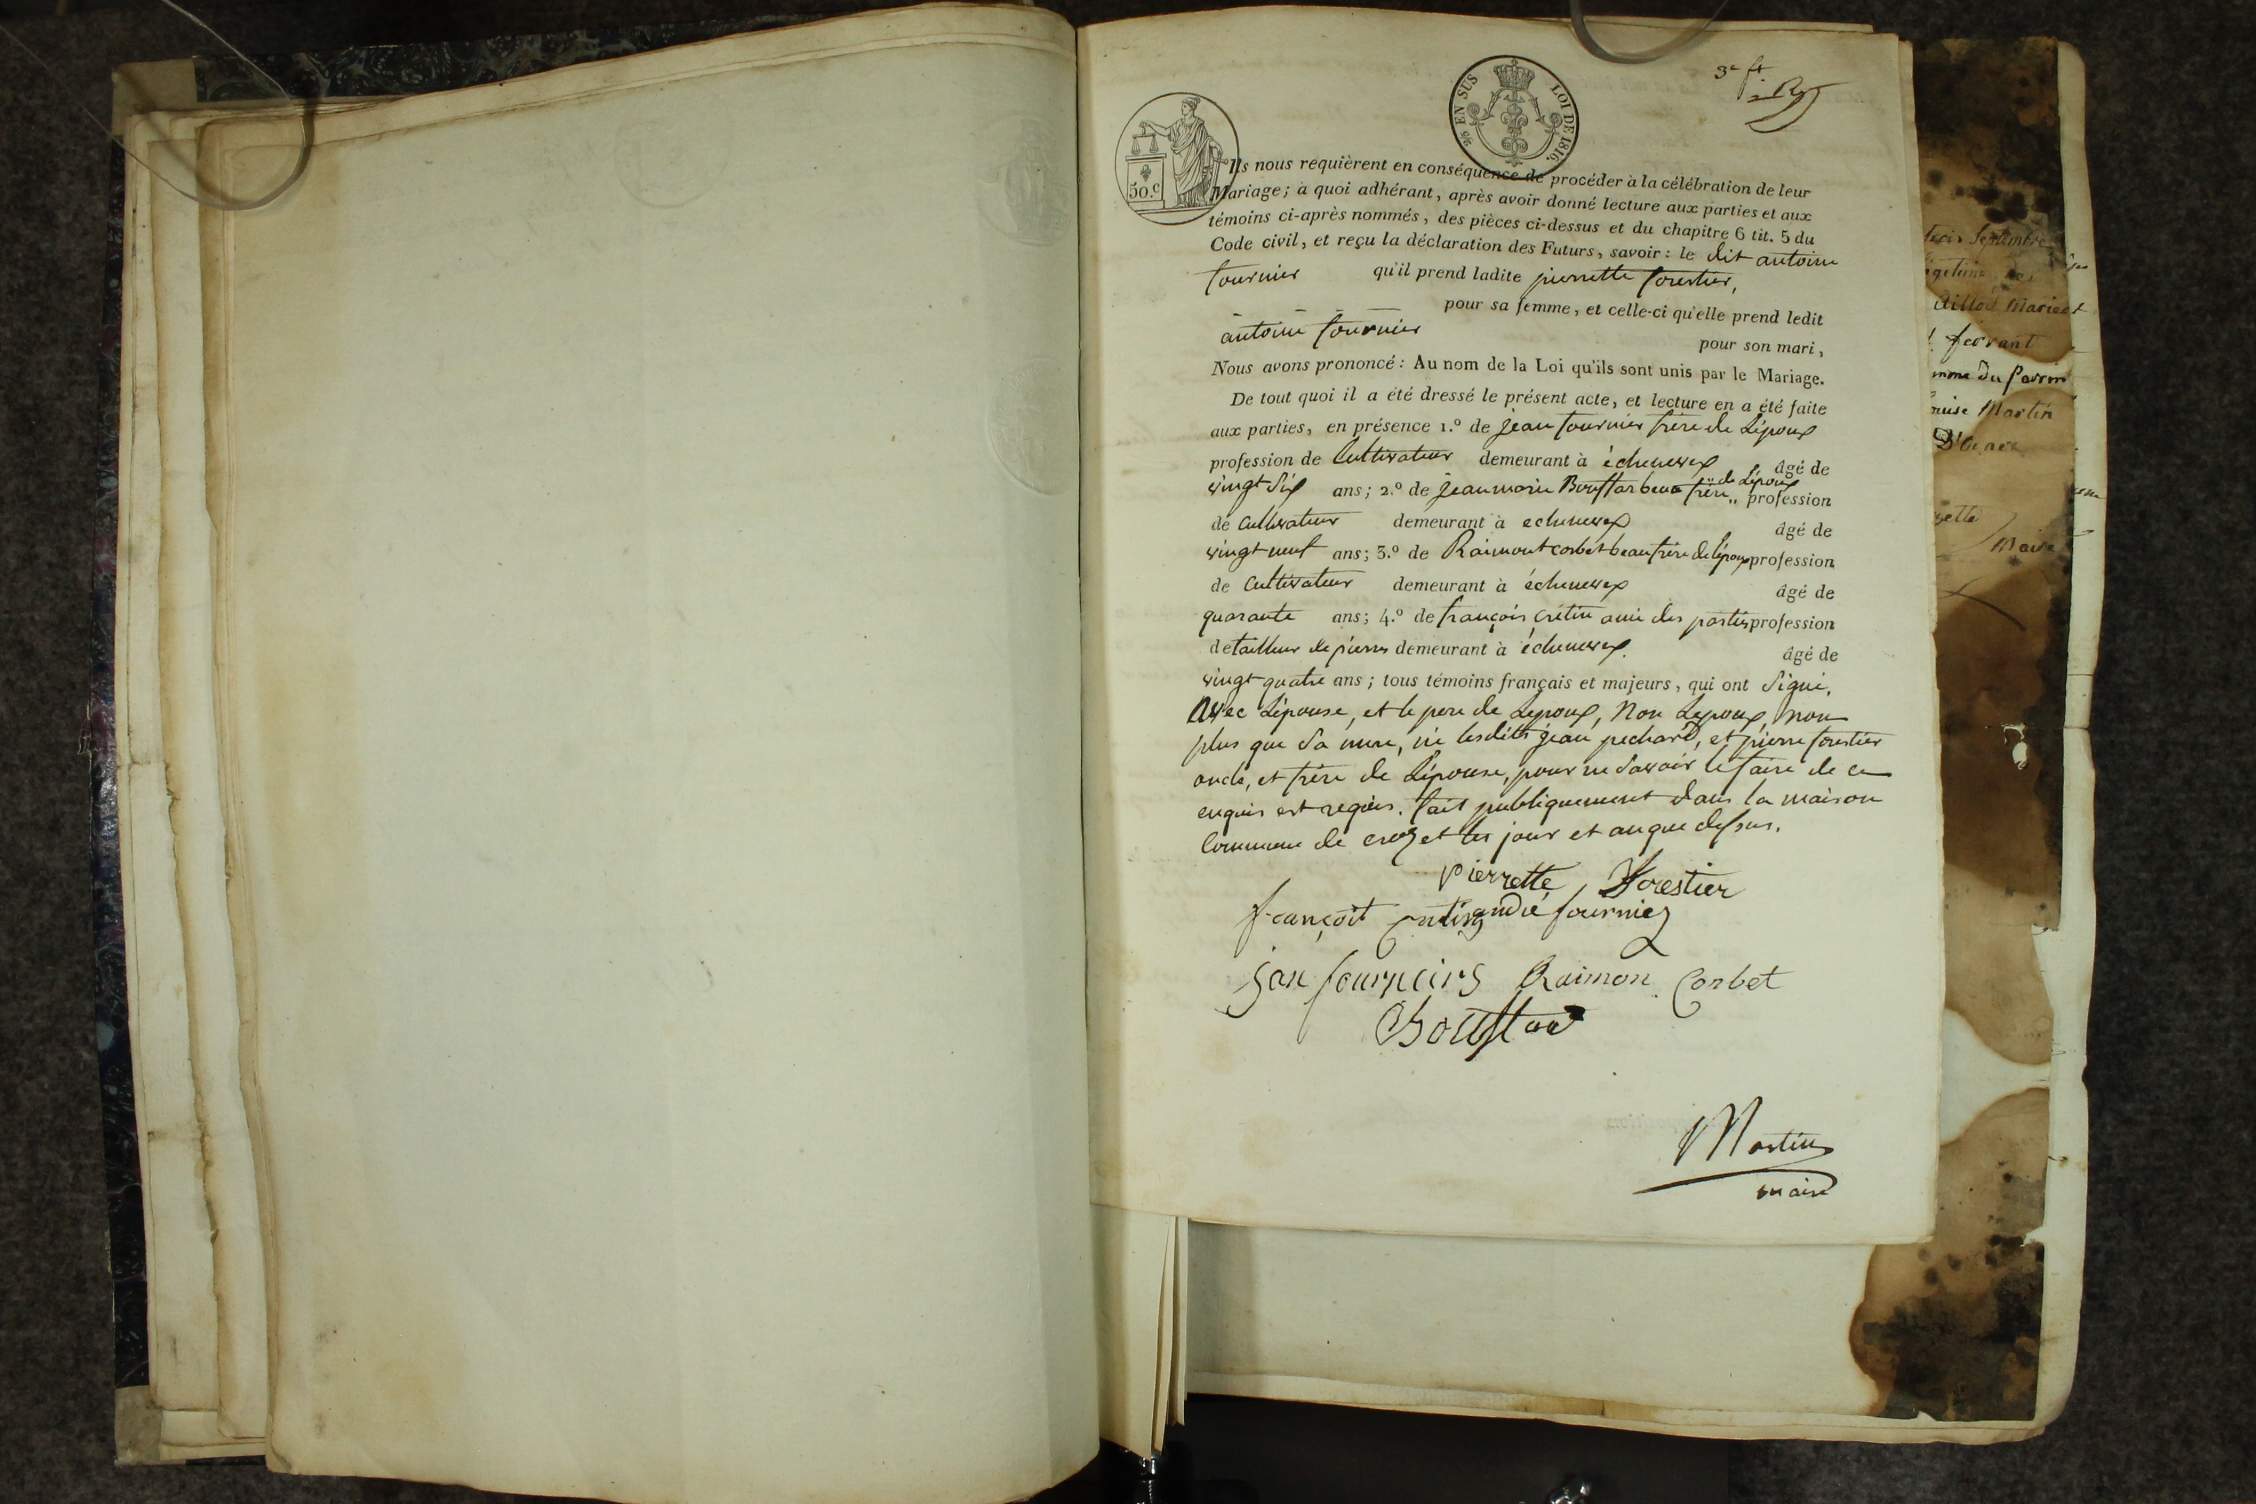 3e ft
50.c
2/5 EN SUS LOI DE 1816.
Ils nous requièrent en conséquence de procéder à la célébration de leur
Mariage; à quoi adhérant, après avoir donné lecture aux parties et aux
témoins ci-après nommés, des pièces ci-dessus et du chapitre 6 tit. 5 du
Code civil, et reçu la déclaration des Futurs, savoir: le dit antoine
fournier qu'il prend ladite pierrette forestier,
pour sa femme, et celle-ci qu'elle prend ledit
antoine fournier
pour son mari,
Nous avons prononcé: Au nom de la Loi qu'ils sont unis par le Mariage.
De tout quoi il a été dressé le présent acte, et lecture en a été faite
aux parties, en présence 1.º de jean fournier frère de Lépoux
profession de Cultivateur demeurant à échenevex âgé de
vingt Six ans; 2.º de jean marie Bouftar beau frère de Lépoux profession
de Cultivateur demeurant à echenevex âgé de
vingt neuf ans; 3.º de Raimont corbet beau frère de Lépoux profession
de Cultivateur demeurant à échenevex âgé de
quarante ans; 4.º de françois crétin ami des parties profession
de tailleur de pierres demeurant à échenevex. âgé de
vingt quatre ans; tous témoins français et majeurs, qui ont Signé.
Avec Lépouse, et le pere de Lepoux, Non Lepoux, non
plus que Sa mere, ni lesdits jean pechard, et pierre forestier
oncle, et frère de Lépouse, pour ne Savoir le faire de ce
enquis est requis. fait publiquement dans la maison
Commune de crozet les jour et an que dessus.
Pierrette Forestier
françoit Cretin andré fournier
jan fourneirs Raimon Corbet
Bouftar
Martin
maire
Septembre
Mariest
ferrant
Louise Martin
Maire